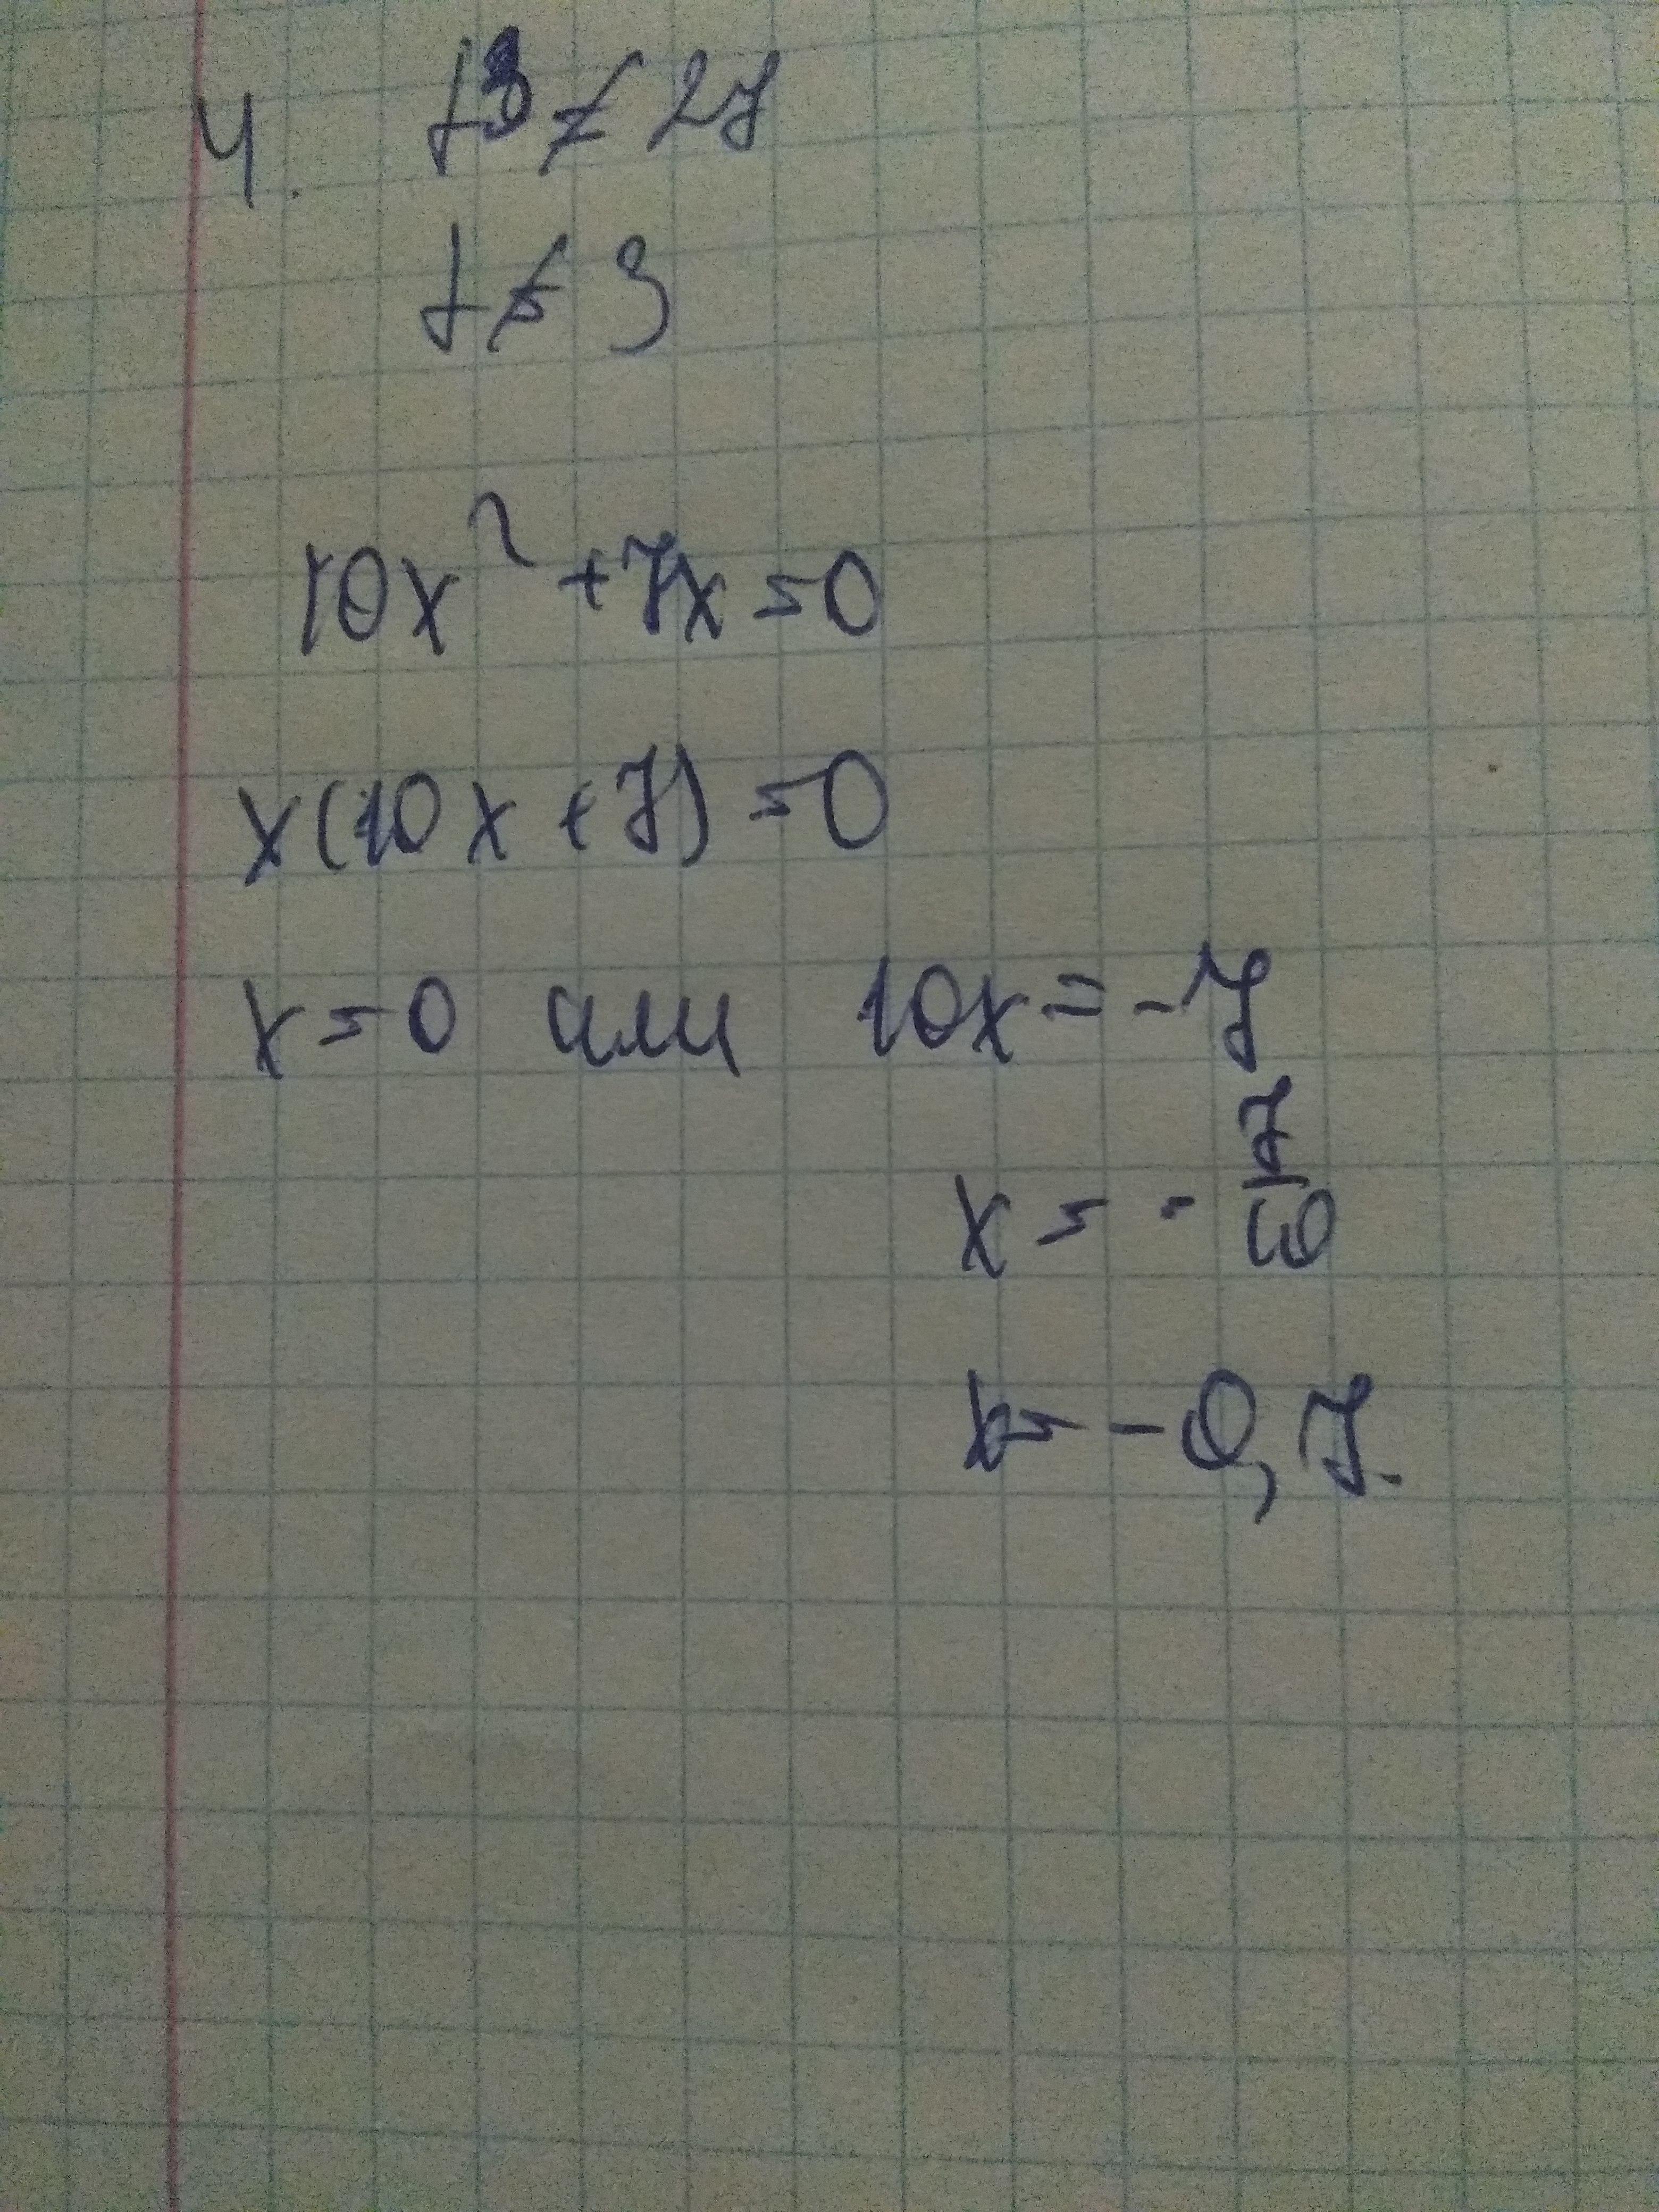 4. t³ ≠ 27
t ≠ 3
10x² + 7x = 0
x(10x + 7) = 0
x = 0 или 10x = -7
x = - 7/10
x = -0,7.